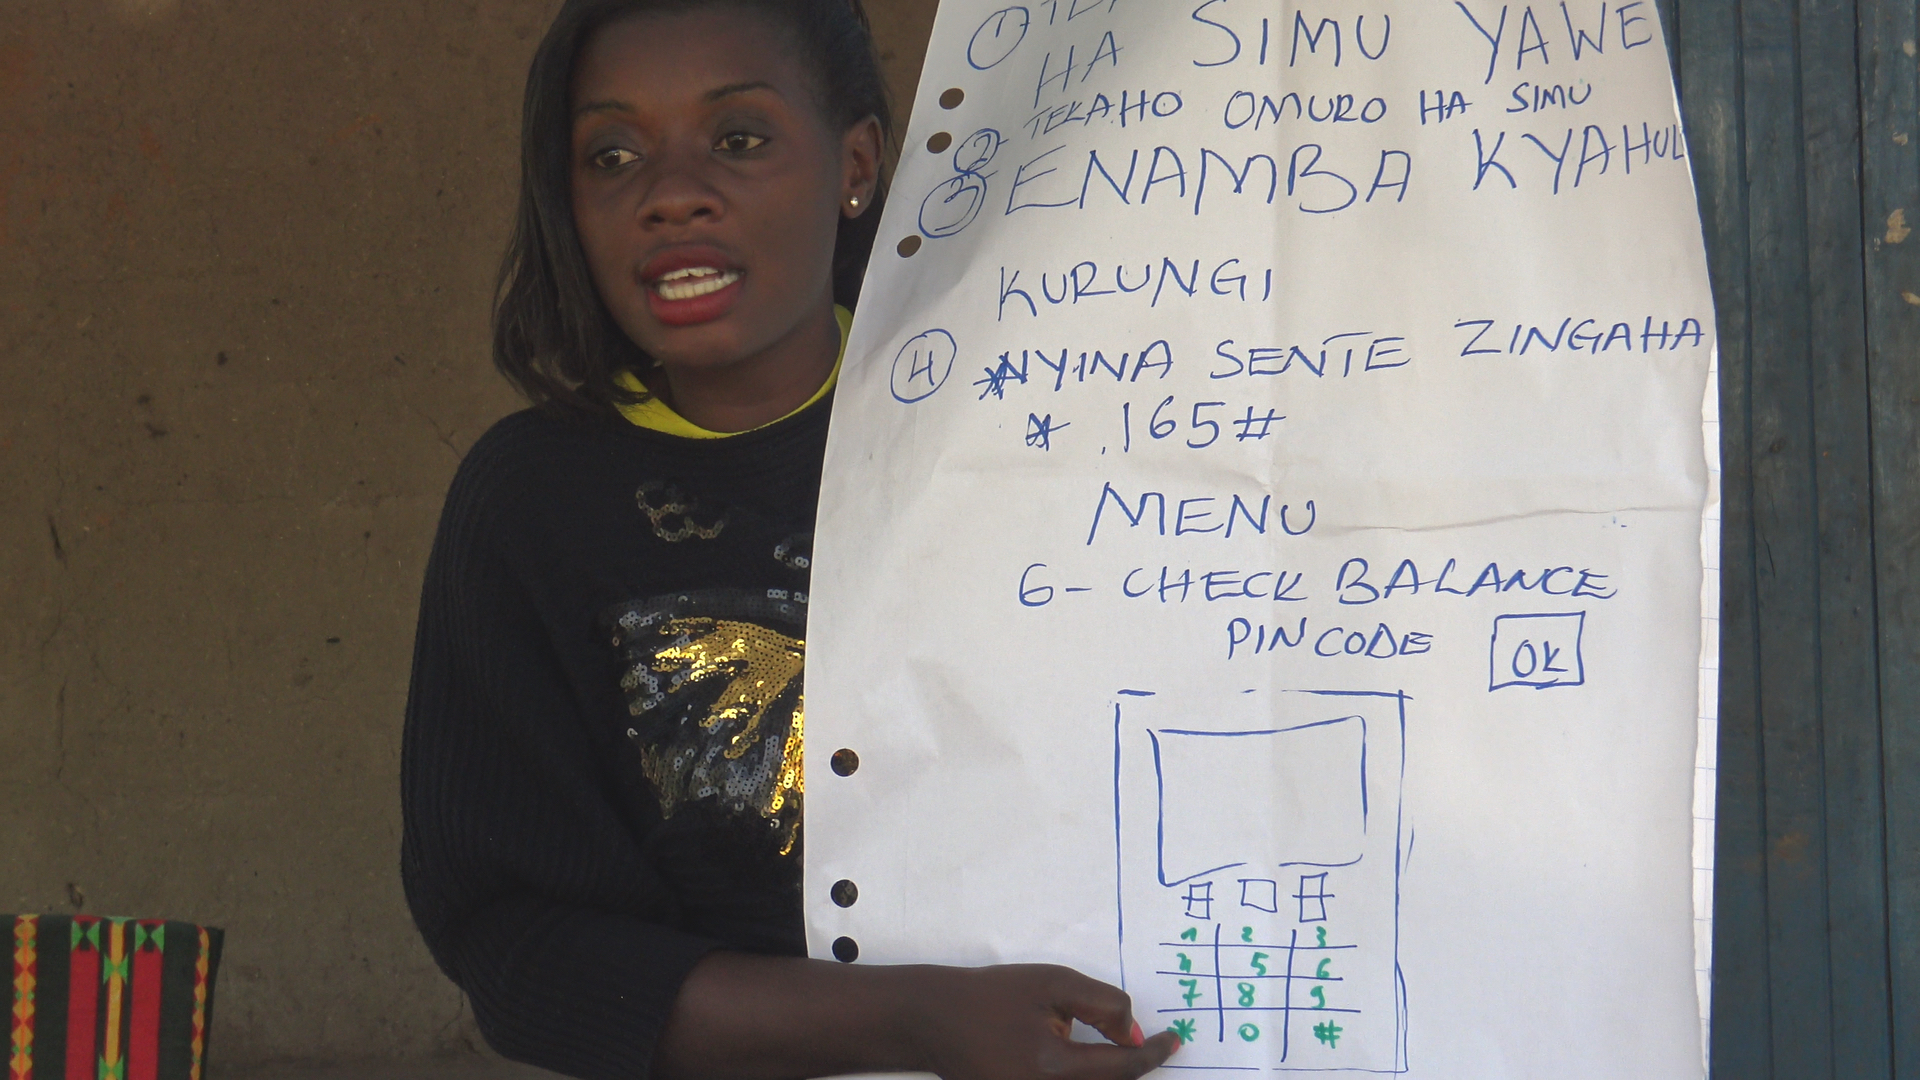 ① 
HA SIMU YAWE
② TEKAHO OMURO HA SIMU
③ ENAMBA KYAHUL
KURUNGI
④ NYINA SENTE ZINGAHA
* .165#
MENU
6 - CHECK BALANCE
PIN CODE OK
1 2 3
4 5 6
7 8 9
* 0 #